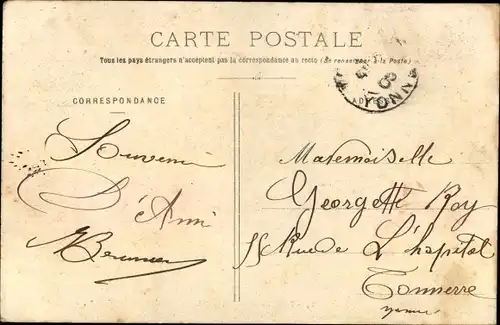 CARTE POSTALE
Tous les pays étrangers n'acceptent pas la correspondance au recto (Se renseigner à la Poste)
CORRESPONDANCE
YONNE
Souvenir
D'Ami
Mademoiselle
Georgette Roy
Rue de L'hopital
Tonnerre
Yonne